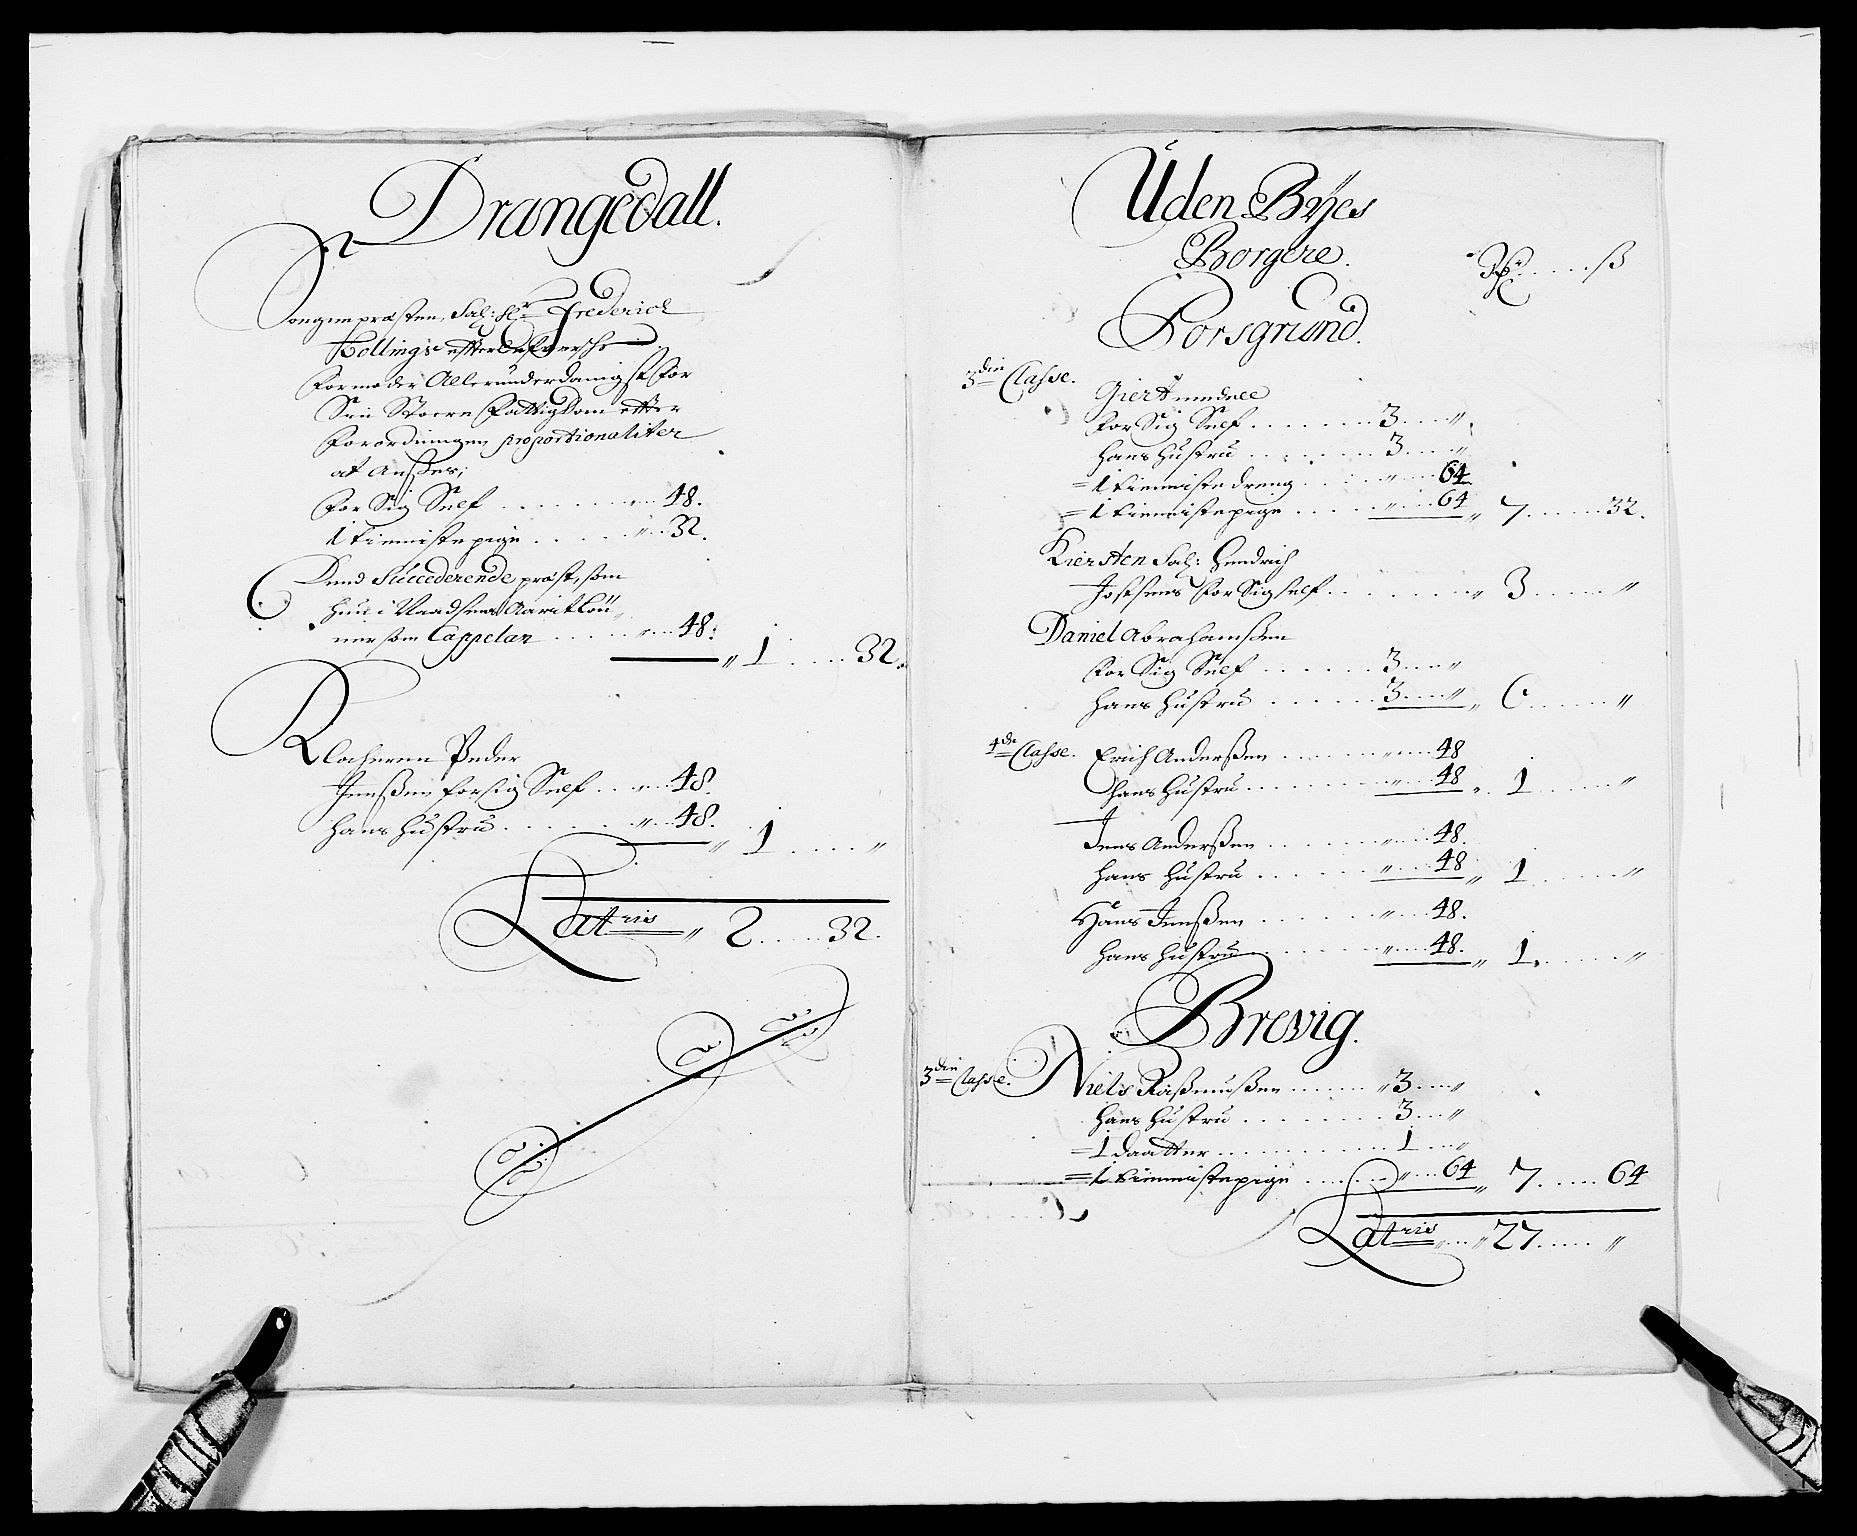 Drangedall.
Songnepræsten, Sal: Hr Frederich
Hollings efterlefversche
Formoder Allerunderdanigst for
Sin Stoere Fattigdom efter
Forordningen proportionaliter
at ansees;
For Sig Self ....... „ .. 48.
1 tienniste pige ..... „ .. 32.
Dend Succederende præst, som
hun i
som Cappelan ..... „ .. 48:
„ 1 .... 32.
Klocheren Peder
Jenßen for sig Self .. „ .. 48.
hans hustru ...... „ .. 48.
„ 1 .... „
Latris „ 2 ..... 32.
Uden Byes
Borgere.
Rdr ..... ß
Porsgrund.
3die Classe.
Giert
For Sig Self ....... 3 .... „
hans hustru ....... 3 .... „
= 1 tienniste dreng ..... „ ... 64
= 1 tienniste pige ..... „ ... 64 „ 7 ...... 32.
Kiersten Sal: Hendrich
for Sig self ........ „ 3 ..... „
Daniel Abrahamßen
For Sig Self ...... 3 .... „
hans hustru ...... 3 .... „ „ 6 ...... „
4de Classe. Erich Anderßen ...... „ ... 48
hans hustru ....... „ ... 48 „ 1 ...... „
Jens Anderßen ...... „ ... 48.
hans hustru ...... „ ... 48 „ 1 ...... „
Hans Jenßen ...... „ ... 48.
hans hustru ...... „ ... 48. „ 1 ...... „
Brevig.
3die Classe. Niels Raßmußen ...... „ 3 .... „
hans hustru ....... 3 ... „
= 1 daatter ......... 1 ... „
= 1 tienniste pige ...... „ ... 64 „ 7 ..... 64
Latris „ ... „ 27 ..... „